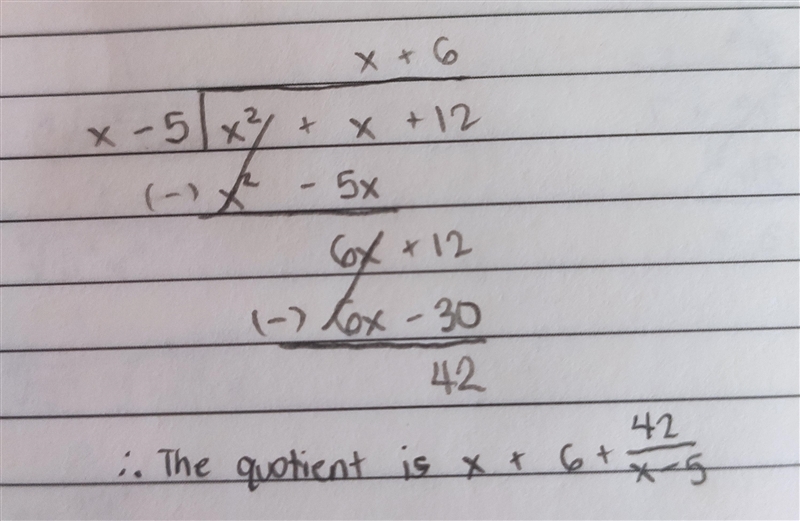 x + 6
x - 5 x² + x + 12
(-) x² - 5x
6x + 12
(-) 6x - 30
42
∴ The quotient is x + 6 + 42/x-5